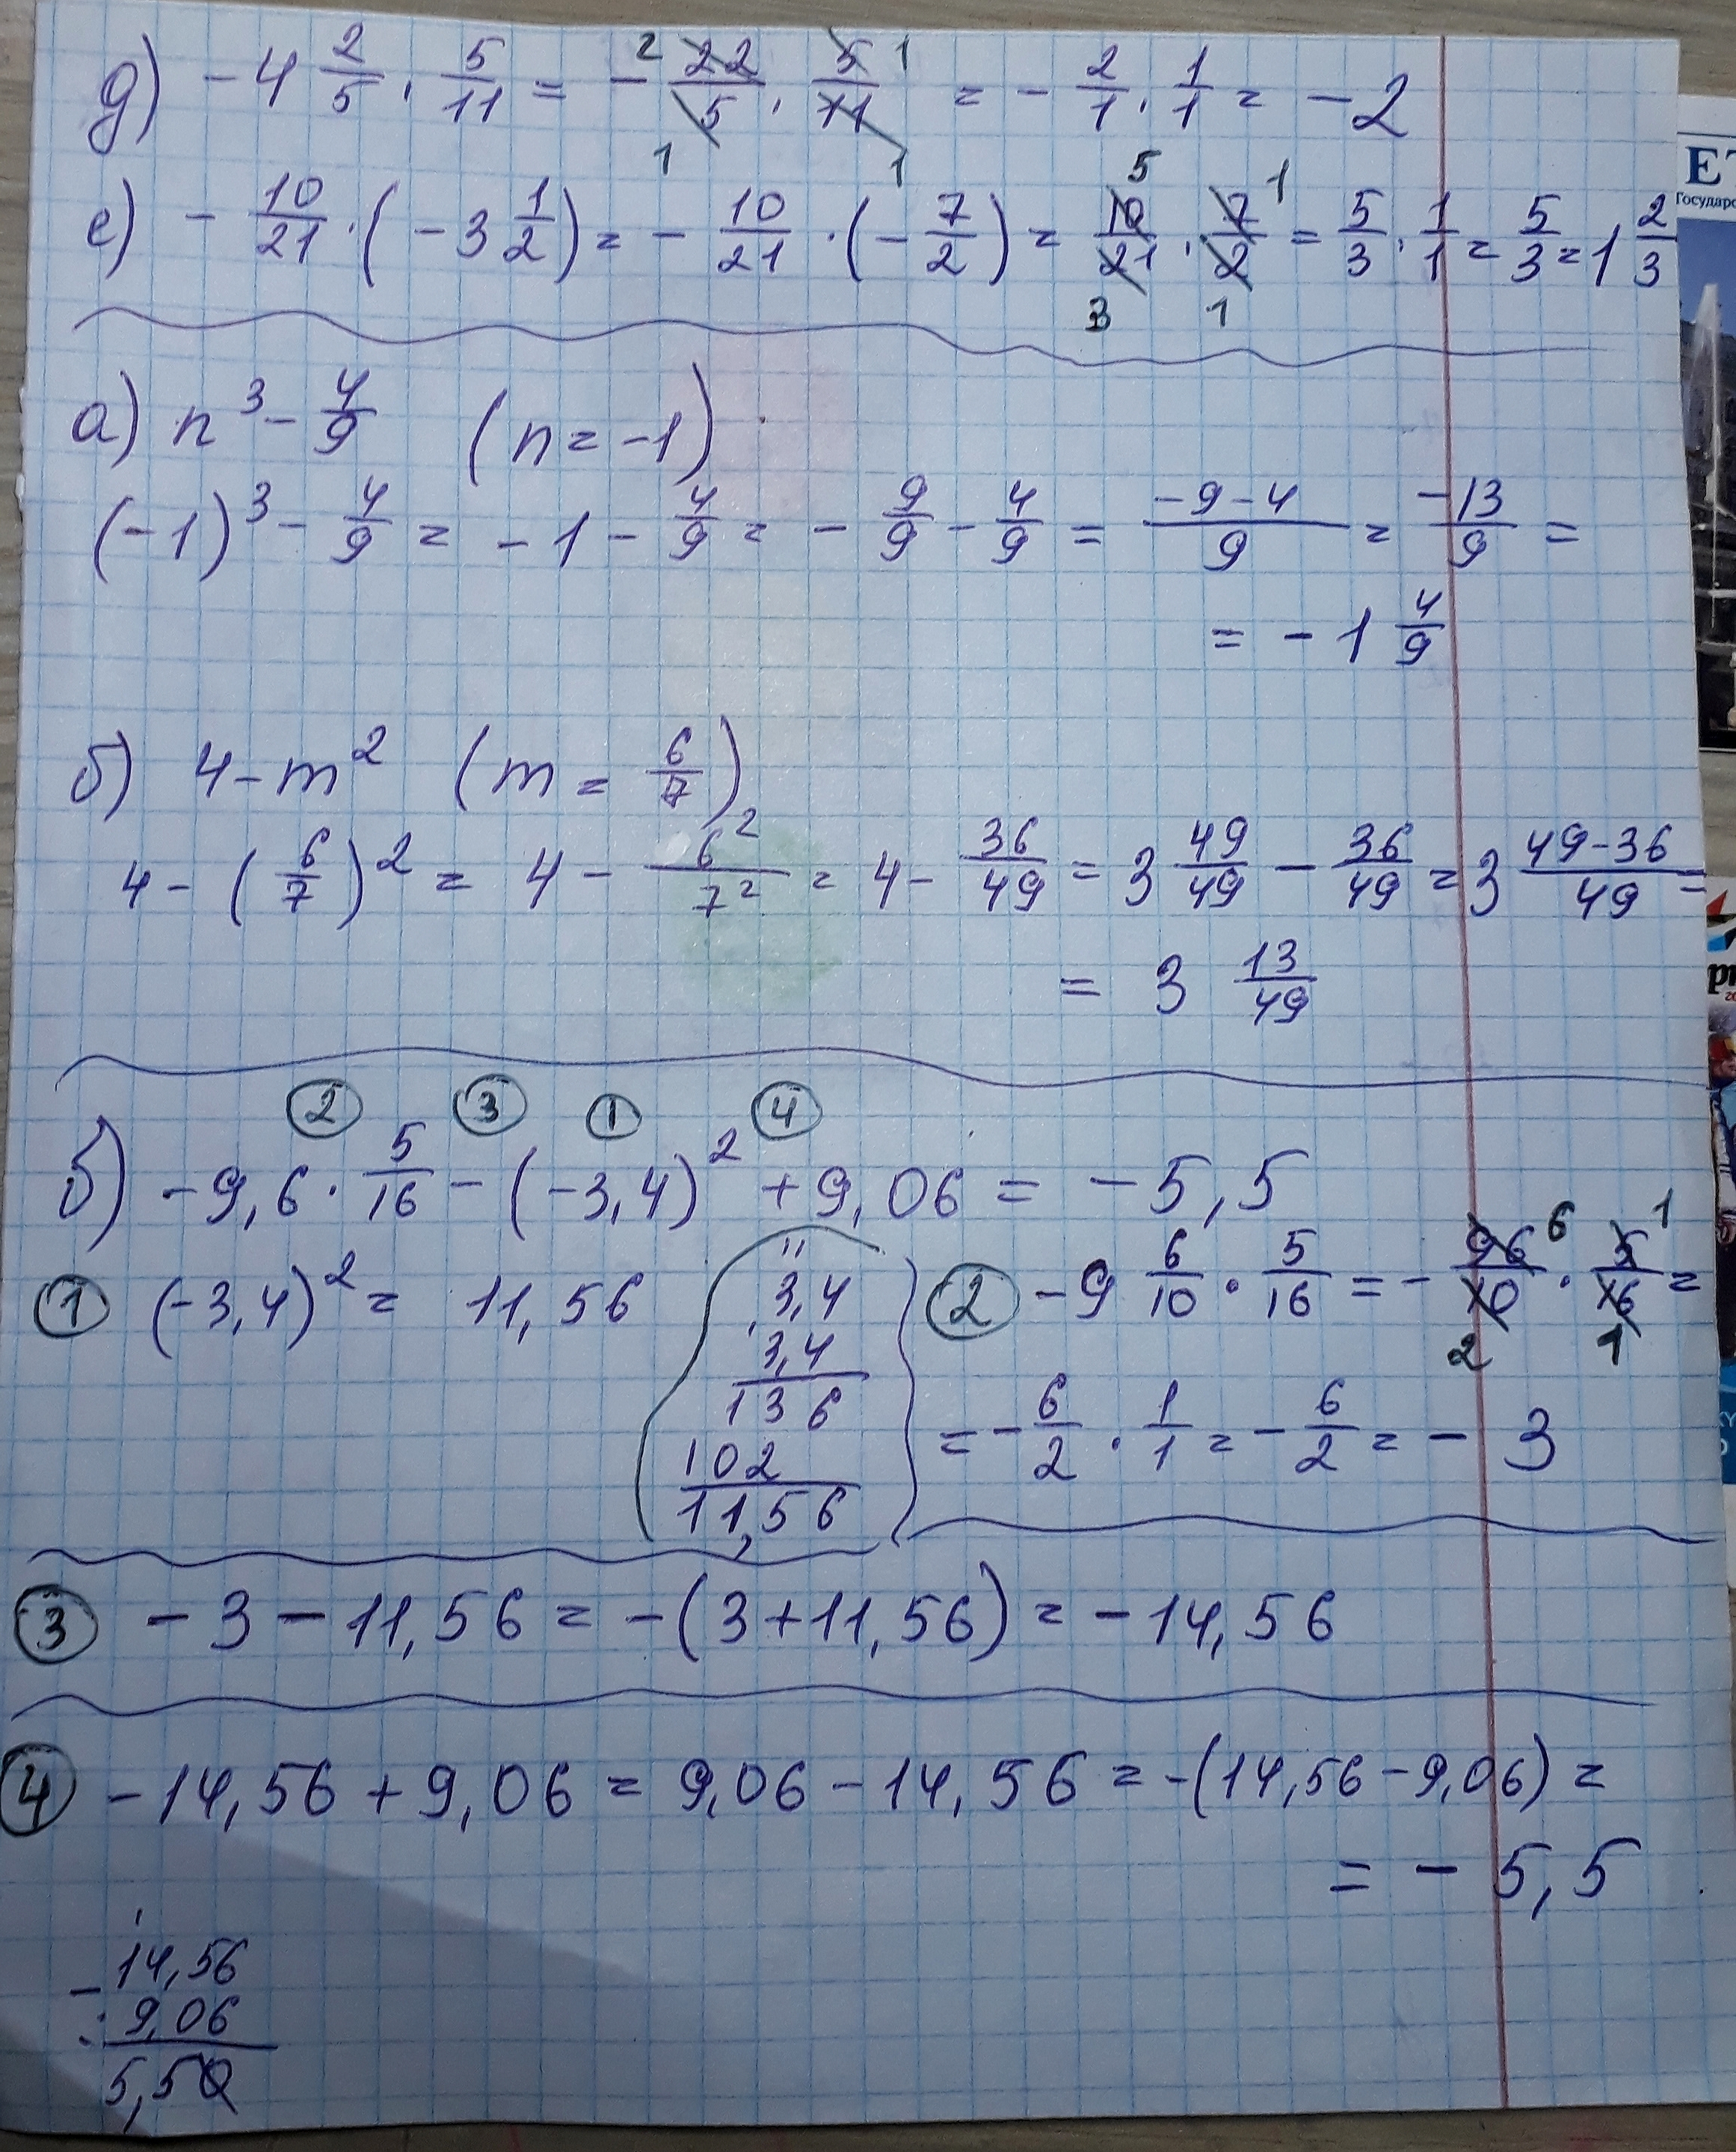 д) -4 2/5 · 5/11 = - 22/5 · 5/11 = - 2/1 · 1/1 = -2
2 1 1 1
е) - 10/21 · (-3 1/2) = - 10/21 · (- 7/2) = 10/21 · 7/2 = 5/3 · 1/1 = 5/3 = 1 2/3
5 1 3 1
а) n³ - 4/9 (n = -1)
(-1)³ - 4/9 = -1 - 4/9 = - 9/9 - 4/9 = (-9-4)/9 = -13/9 =
= -1 4/9
б) 4 - m² (m = 6/7)
4 - (6/7)² = 4 - 6²/7² = 4 - 36/49 = 3 49/49 - 36/49 = 3 (49-36)/49 =
= 3 13/49
② ③ ① ④
б) -9,6 · 5/16 - (-3,4)² + 9,06 = -5,5
① (-3,4)² = 11,56
3,4
3,4
136
102
11,56
② -9 6/10 · 5/16 = - 96/10 · 5/16 =
6 1 2 1
= - 6/2 · 1/1 = - 6/2 = - 3
③ -3 - 11,56 = -(3+11,56) = -14,56
④ -14,56 + 9,06 = 9,06 - 14,56 = -(14,56 - 9,06) =
= - 5,5
- 14,56
9,06
5,50
ЕТ
Государ